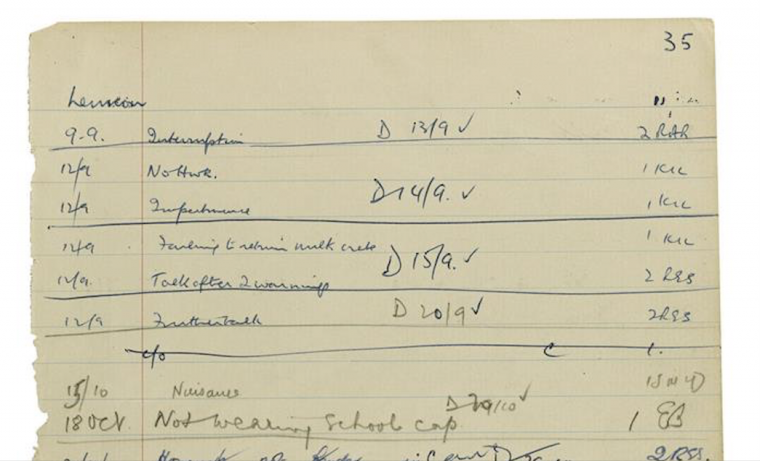 35
Lennon
9.9. Interruption D 13/9 ✓ 2
12/9 No Hwk. 1 KIL
D 14/9. ✓
12/9 Impertinence 1 KIL
12/9 Failing to return milk crate 1 KIL
D 15/9. ✓
12/9. Talk after 2 warnings 2 RSS
12/9 Further talk D 20/9 ✓ 2 RSS
c/o C 1.
15/10 Nuisance
18 Oct. Not wearing school cap 1 EB
2 RSS.